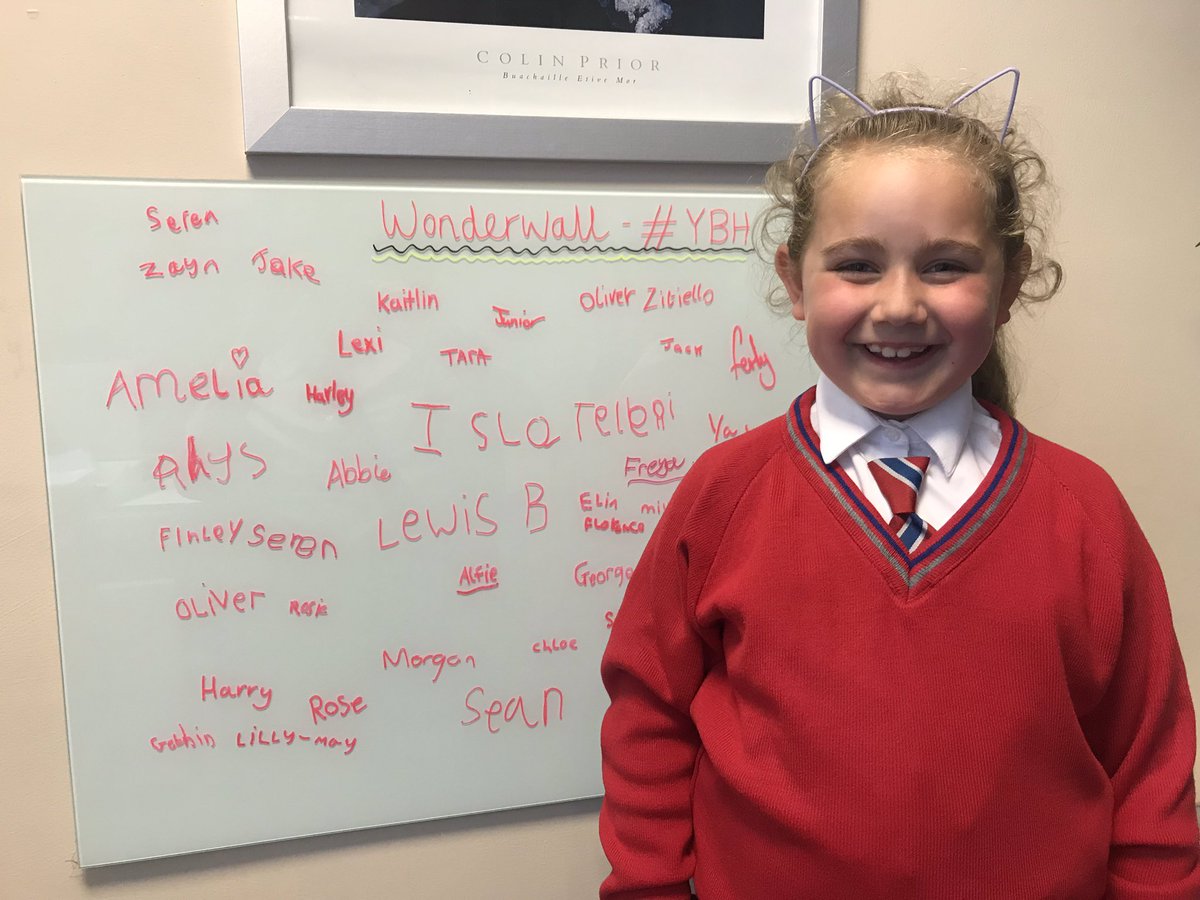 COLIN PRIOR
Buachaille Etive Mor
Wonderwall - #YBH
Seren
Zayn Jake
Kaitlin Junior Oliver Zibiello
Lexi TARA Jack ferly
Amelia Harley
Isla Teleri
Rhys Abbie Freya
Finley Seren Lewis B Elin
Florence
Alfie George
Oliver Rosie
Morgan chloe
Harry Rose Sean
LiLLY-May